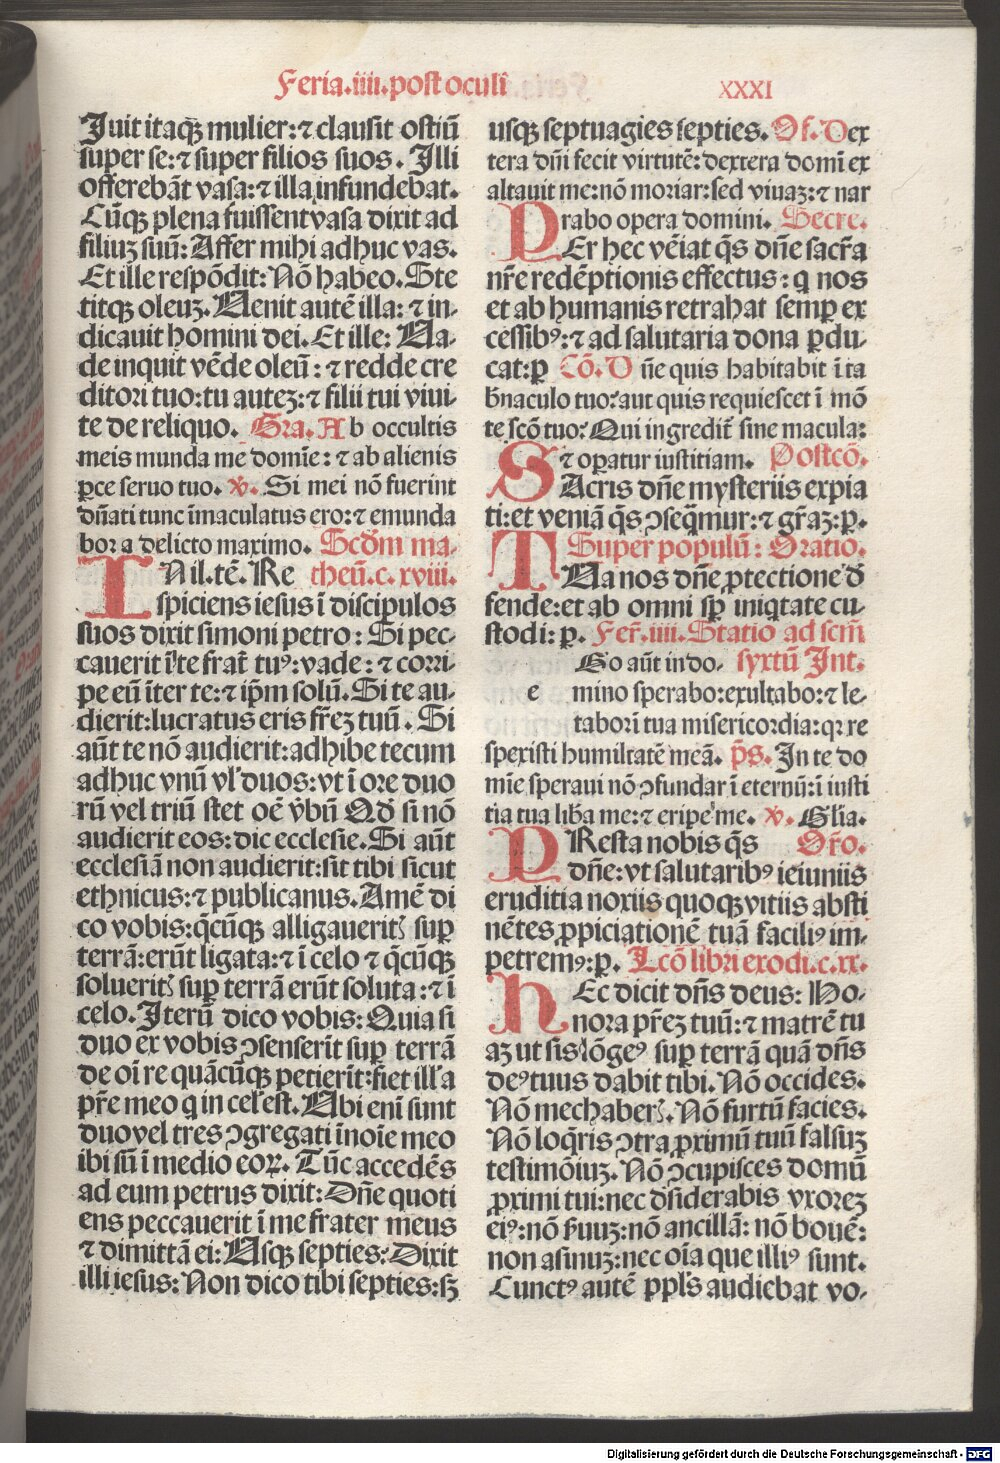 Feria.iiii.post oculi
XXXI
Juit itaqȝ mulier:⁊ clausit ostiū
super se:⁊ super filios suos. Illi
offerebāt vasa:⁊ illa infundebat.
Cūqȝ plena fuissent vasa dixit ad
filiuȝ suū: Affer mihi adhuc vas.
Et ille respōdit: Nō habeo. Ste
titqȝ oleuȝ. Uenit autē illa: ⁊ in-
dicauit homini dei. Et ille: Ua-
de inquit vēde oleū: ⁊ redde cre
ditori tuo: tu auteȝ: ⁊ filii tui viui-
te de reliquo. Gra. Ab occultis
meis munda me domīe: ⁊ ab alienis
ꝑce seruo tuo. ℣. Si mei nō fuerint
dn̄ati tunc īmaculatus ero:⁊ emunda
bor a delicto maximo. Scd̄m ma.
IN il.tē. Re theū.c.xviii.
spiciens iesus ī discipulos
suos dixit simoni petro: Si pec-
cauerit ī te frat̄ tuꝰ: vade: ⁊ corri-
pe eū īter te:⁊ ip̄m solū. Si te au-
dierit:lucratus eris fr̄eȝ tuū. Si
aūt te nō audierit: adhibe tecum
adhuc vnū vl' duos: vt ī ore duo
rū vel triū stet oē v̄bū Qd̄ si nō
audierit eos: dic ecclesie. Si aūt
ecclesiā non audierit: sit tibi sicut
ethnicus:⁊ publicanus. Amē di
co vobis: q̄cūqȝ alligauerit' suꝑ
terrā: erūt ligata:⁊ ī celo ⁊ q̄cūqȝ
solueritꝭ suꝑ terrā erūt soluta: ⁊ ī
celo. Iterū dico vobis: Quia si
duo ex vobis ↄsenserīt suꝑ terrā
de oī re quācūqȝ petierīt: fiet ill'a
pr̄e meo q in cel' est. Ubi enī sunt
duo vel tres ↄgregati ī noīe meo
ibi sū ī medio eoꝝ. Tūc accedēs
ad eum petrus dixit: Dn̄e quoti
ens peccauerit ī me frater meus
⁊ dimittā ei: Usqȝ septies: Dixit
illi iesus: Non dico tibi septies: sȝ
usqȝ septuagies septies. Of. Dex
tera dn̄i fecit virtutē: dextera domī ex
altauit me: nō moriar: sed viuaȝ: ⁊ nar
rabo opera domini. Secre.
PEr hec vēiat q̄s dn̄e sacr̄a
nr̄e redēptionis effectus: q nos
et ab humanis retrahat semꝑ ex
cessibꝰ: ⁊ ad salutaria dona ꝑdu-
cat: ꝑ Cō. Dn̄e quis habitabit ī ta
b̄naculo tuo: aut quis requiescet ī mō
te scō tuo: Qui ingredit̄ sine macula:
⁊ oꝑatur iustitiam. Postcō.
SAcris dn̄e mysteriis expia
ti: et veniā q̄s ↄseq̄mur: ⁊ gr̄aȝ: ꝑ.
Super populū: Oratio.
TUa nos dn̄e ꝓtectione d̄
fende: et ab omni sꝑ iniqtate cu-
stodi: ꝑ. Fer̄.iiii. Statio ad scm̄
Go aūt in do- syxtū Int.
e mino sperabo: exultabo: ⁊ le-
tabor ī tua misericordia: q: re
spexisti humilitatē meā. p̄s. In te do
mīe speraui nō ↄfundar ī eternū: ī iusti
tia tua lib̄a me: ⁊ eripe me. ℣. Gl'ia.
PResta nobis q̄s Or̄o.
dn̄e: vt salutaribꝰ ieiuniis
eruditia noxiis quoqȝ vitiis absti
nētes ꝓpiciationē tuā faciliꝰ im-
petremꝰ: ꝑ. Lcō libri exodi.c.xx.
HEc dicit dn̄s deus: Ho-
nora pr̄eȝ tuū: ⁊ matrē tu
aȝ ut sis lōgeꝰ suꝑ terrā quā dn̄s
deꝰ tuus dabit tibi. Nō occides.
Nō mechaberꝭ. Nō furtū facies.
Nō loq̄ris ↄtra ꝓximū tuū falsuȝ
testimōiuȝ. Nō ↄcupisces domū
ꝓximi tui: nec d̄siderabis vxoreȝ
eiꝰ: nō s̄uuȝ: nō ancillā: nō bouē:
non asinuȝ: nec oīa que illiꝰ sunt.
Cunctꝰ autē ppl's audiebat vo-
Digitalisierung gefördert durch die Deutsche Forschungsgemeinschaft - DFG